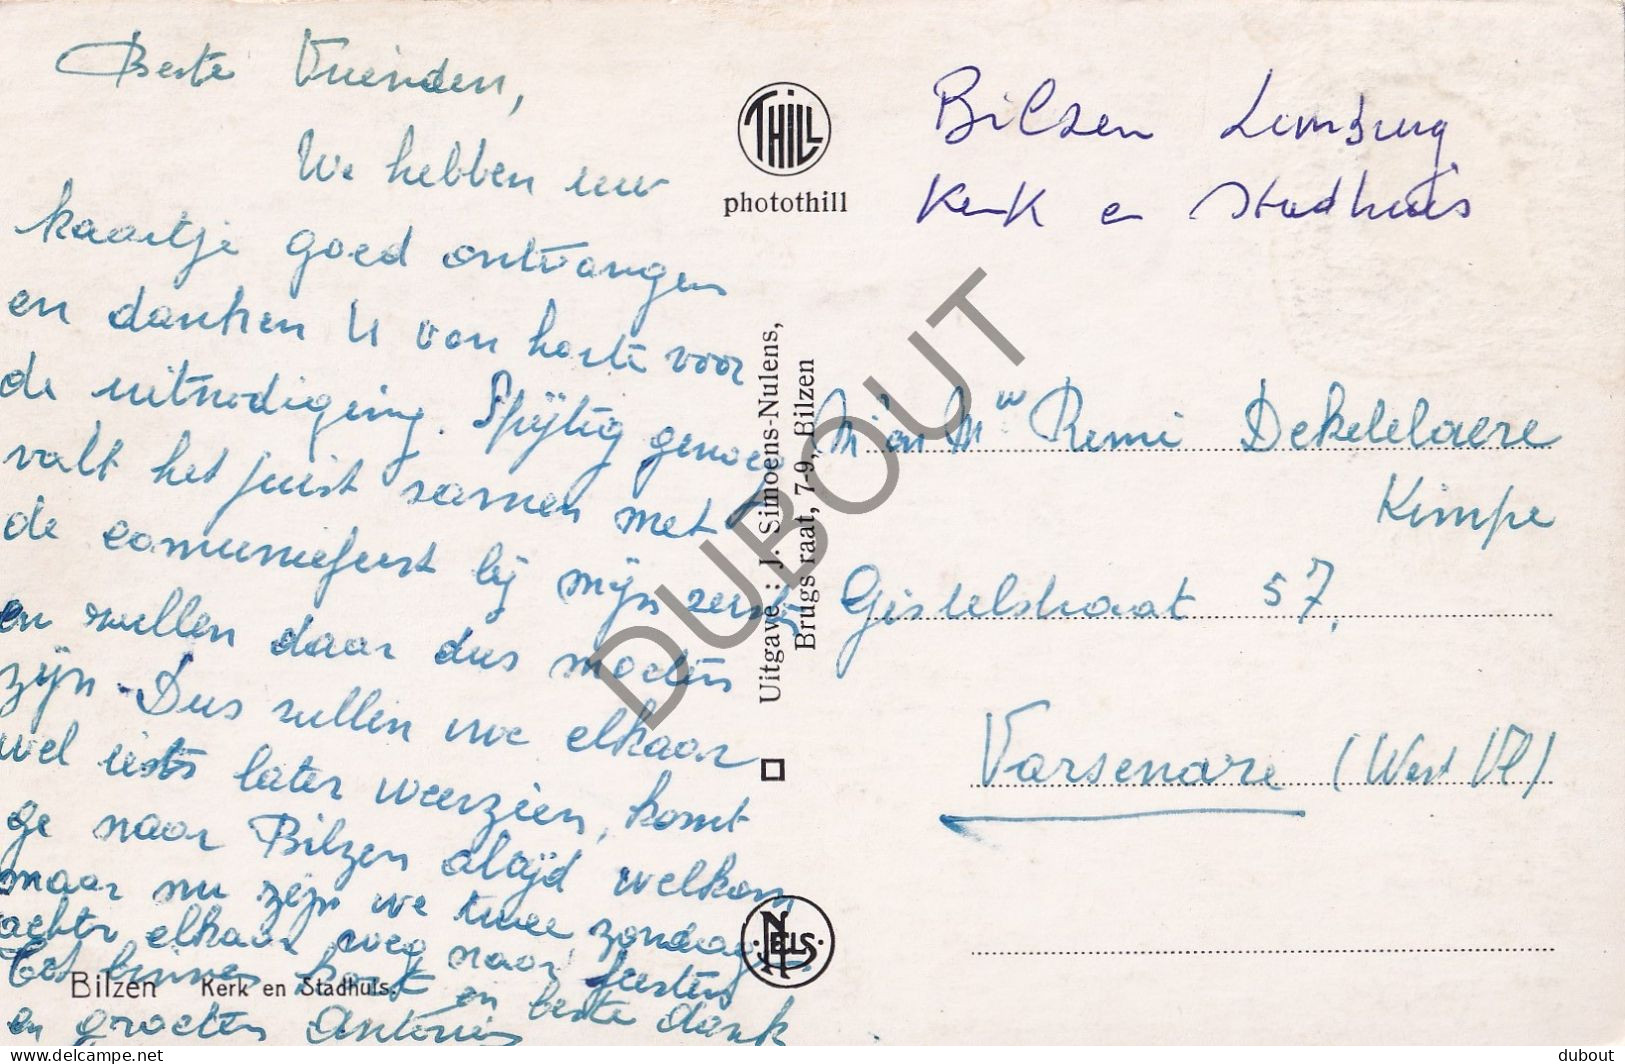 Beste Vrienden,
We hebben uw
kaartje goed ontvangen
en danken U van harte voor
de uitnodiging. Spijtig genoeg
valt het juist samen met
de communiefeest bij mijn zerster
en zullen daar dus moeten
zijn. Dus zullen we elkaar
wel iets later weerzien, komt
ge naar Bilzen altijd welkom
maar nu zijn we twee zondagen
achter elkaar weg naar feesten
Tot binnen kort en beste dank
en groeten Antoine
Bilzen Kerk en Stadhuis.
THILL
photothill
Uitgave : J. Simoens-Nulens,
Brugs raat, 7-9, Bilzen
NELS
Bilzen Limburg
Kerk en Stadhuis
Mr en Mw Remi Dekelelaere
Kimpe
Gistelstraat 57,
Varsenare (West Vl)
DUBOUT
delcampe.net
dubout